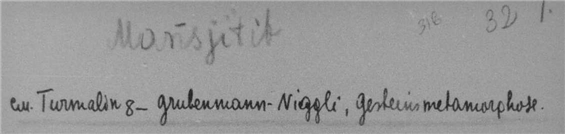 316 32 1.
Marisjitit
см. Turmalin 8- Grubenmann-Niggli, Gesteinsmetamorphose.